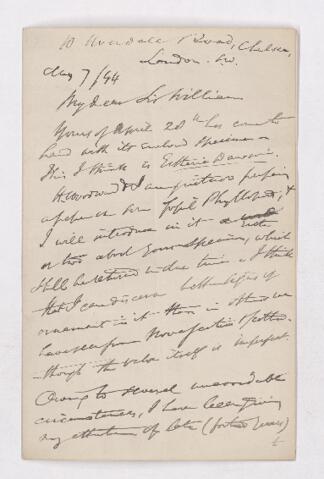 10 Uverdale Road, Chelsea,
London. S.W.
May 7/94
My dear Sir William
Yours of April 20th has come to
hand with its enclosed specimen.
This I think is Estheria Dawsoni.
H. Woodward & I are just now preparing
a paper on some fossil Phyllopods, &
I will introduce in it a
or two about your specimen, which
shall be returned in due time. I think
that I can discern better signs of
ornament in it than in others we
have seen from Nova Scotia
though the valve itself is imperfect.
Owing to several unavoidable
circumstances, I have been giving
my attention of late (for two years)
to